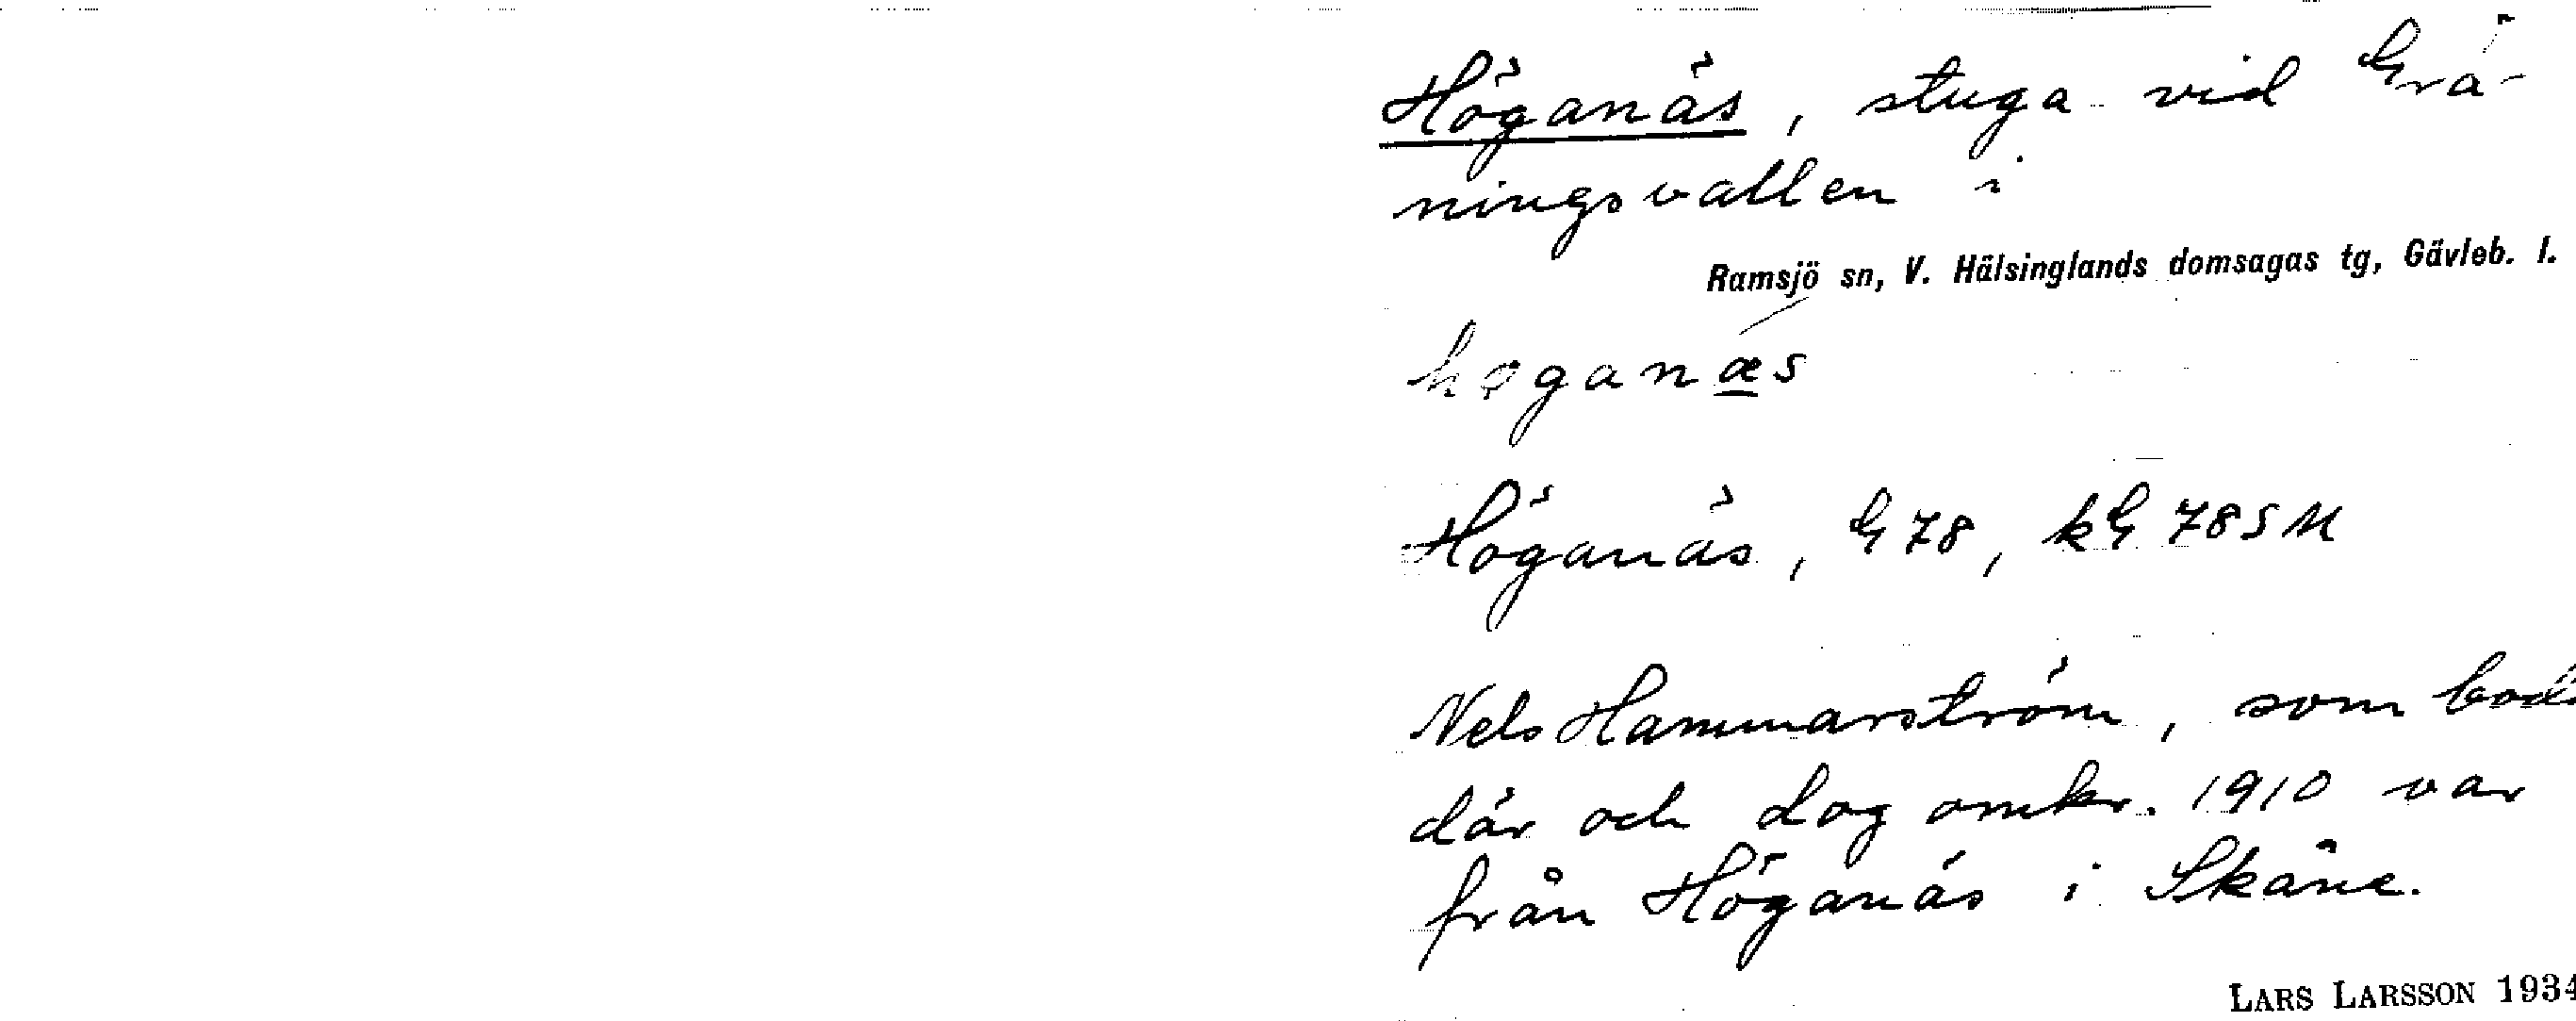 Höganäs, stuga vid Grä-
ningsvallen i
Ramsjö sn, V. Hälsinglands domsagas tg, Gävleb. l.
høganæs
Höganäs, G 78, kG 78 SM
Nels Hammarström, som bode
där och dog omkr. 1910 var
från Höganäs i Skåne.
LARS LARSSON 1934